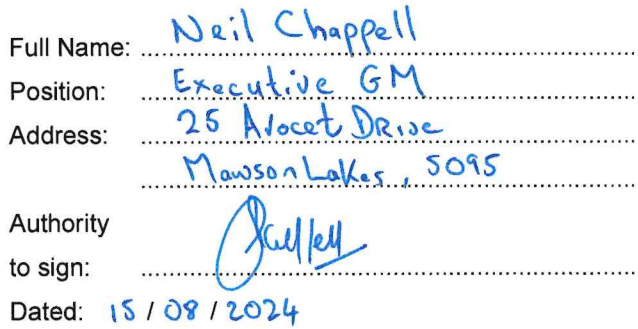 Full Name: Neil Chappell
Position: Executive GM
Address: 25 Avocet Drive
Mawson Lakes, 5095
Authority
to sign:
Dated: 15 / 08 / 2024